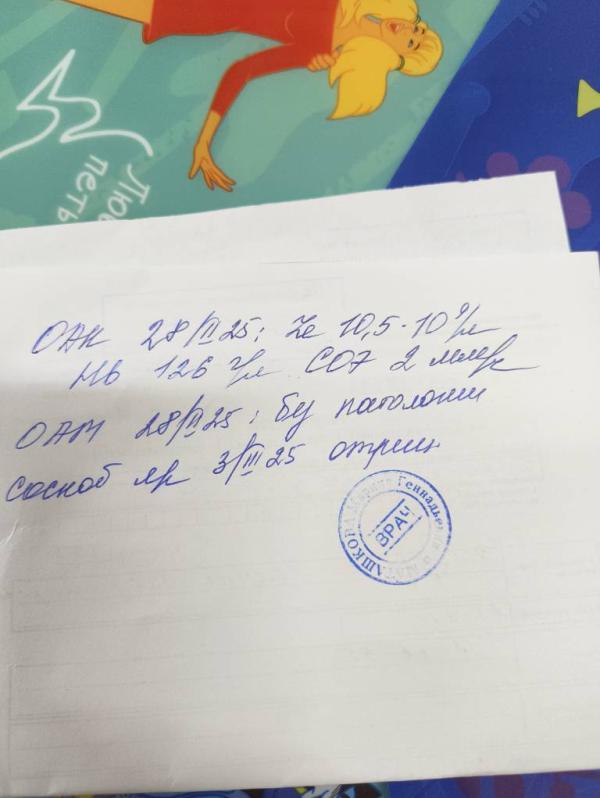 Лю
петь
ОАК 28/II 25: Le 10,5·10⁹/л
Hb 126 г/л СОЭ 2 мм/ч
ОАМ 28/II 25: без патологии
Соскоб 3/III 25 отриц
Геннадьевна
ВРАЧ